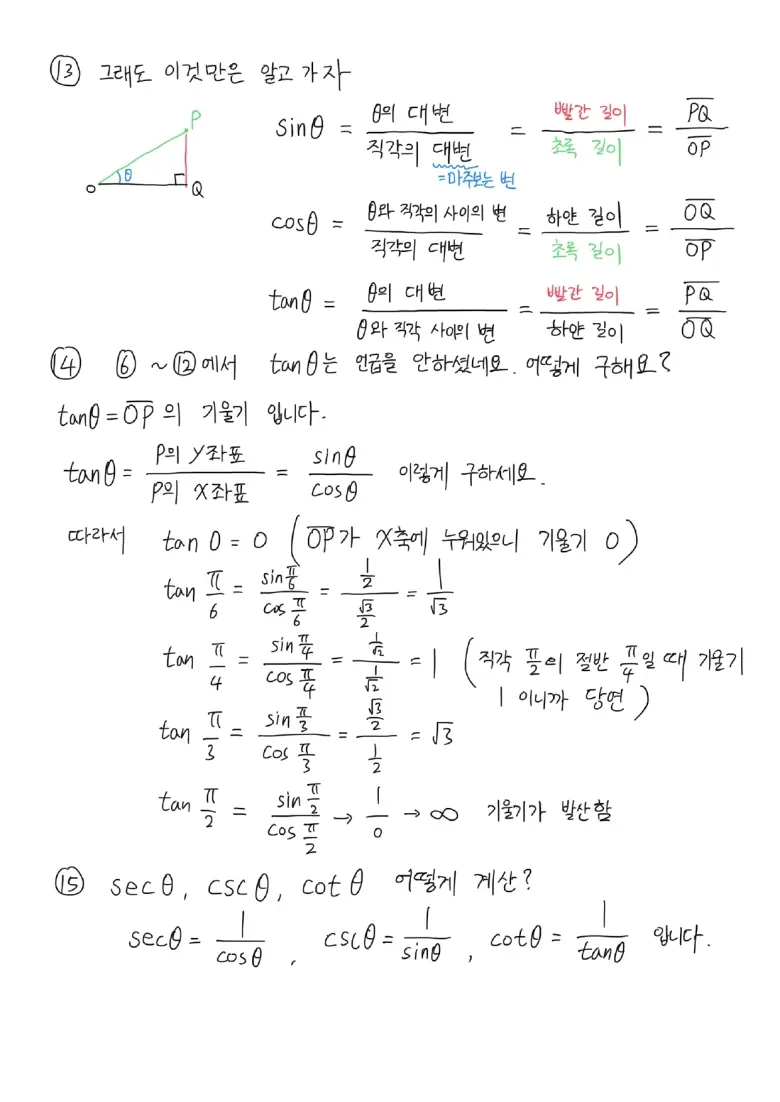 ⑬ 그래도 이것만은 알고 가자
P
O θ Q
sinθ = θ의 대변 / 직각의 대변 = 빨간 길이 / 초록 길이 = PQ̅ / OP̅
=마주보는 변
cosθ = θ와 직각의 사이의 변 / 직각의 대변 = 하얀 길이 / 초록 길이 = OQ̅ / OP̅
tanθ = θ의 대변 / θ와 직각 사이의 변 = 빨간 길이 / 하얀 길이 = PQ̅ / OQ̅
⑭ ⑥ ~ ⑫에서 tanθ는 언급을 안하셨네요. 어떻게 구해요?
tanθ = OP̅의 기울기 입니다.
tanθ = P의 Y좌표 / P의 X좌표 = sinθ / cosθ 이렇게 구하세요.
따라서 tan 0 = 0 (OP̅가 X축에 누워있으니 기울기 0)
tan π/6 = sin π/6 / cos π/6 = 1/2 / √3/2 = 1/√3
tan π/4 = sin π/4 / cos π/4 = 1/√2 / 1/√2 = 1 (직각 π/2의 절반 π/4일 때 기울기
1 이니까 당연)
tan π/3 = sin π/3 / cos π/3 = √3/2 / 1/2 = √3
tan π/2 = sin π/2 / cos π/2 → 1/0 → ∞ 기울기가 발산함
⑮ secθ, cscθ, cotθ 어떻게 계산?
secθ = 1/cosθ , cscθ = 1/sinθ , cotθ = 1/tanθ 입니다.